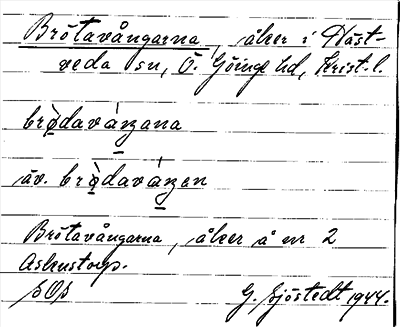 Brötavångarna, åker i Häst-
veda sn, Ö. Göinge hd, Krist. l.
brø̀daváŋana
äv. brø̀daváŋen
Brötavångarna, åker å nr 2
Askustorp.
G. Sjöstedt 1944.